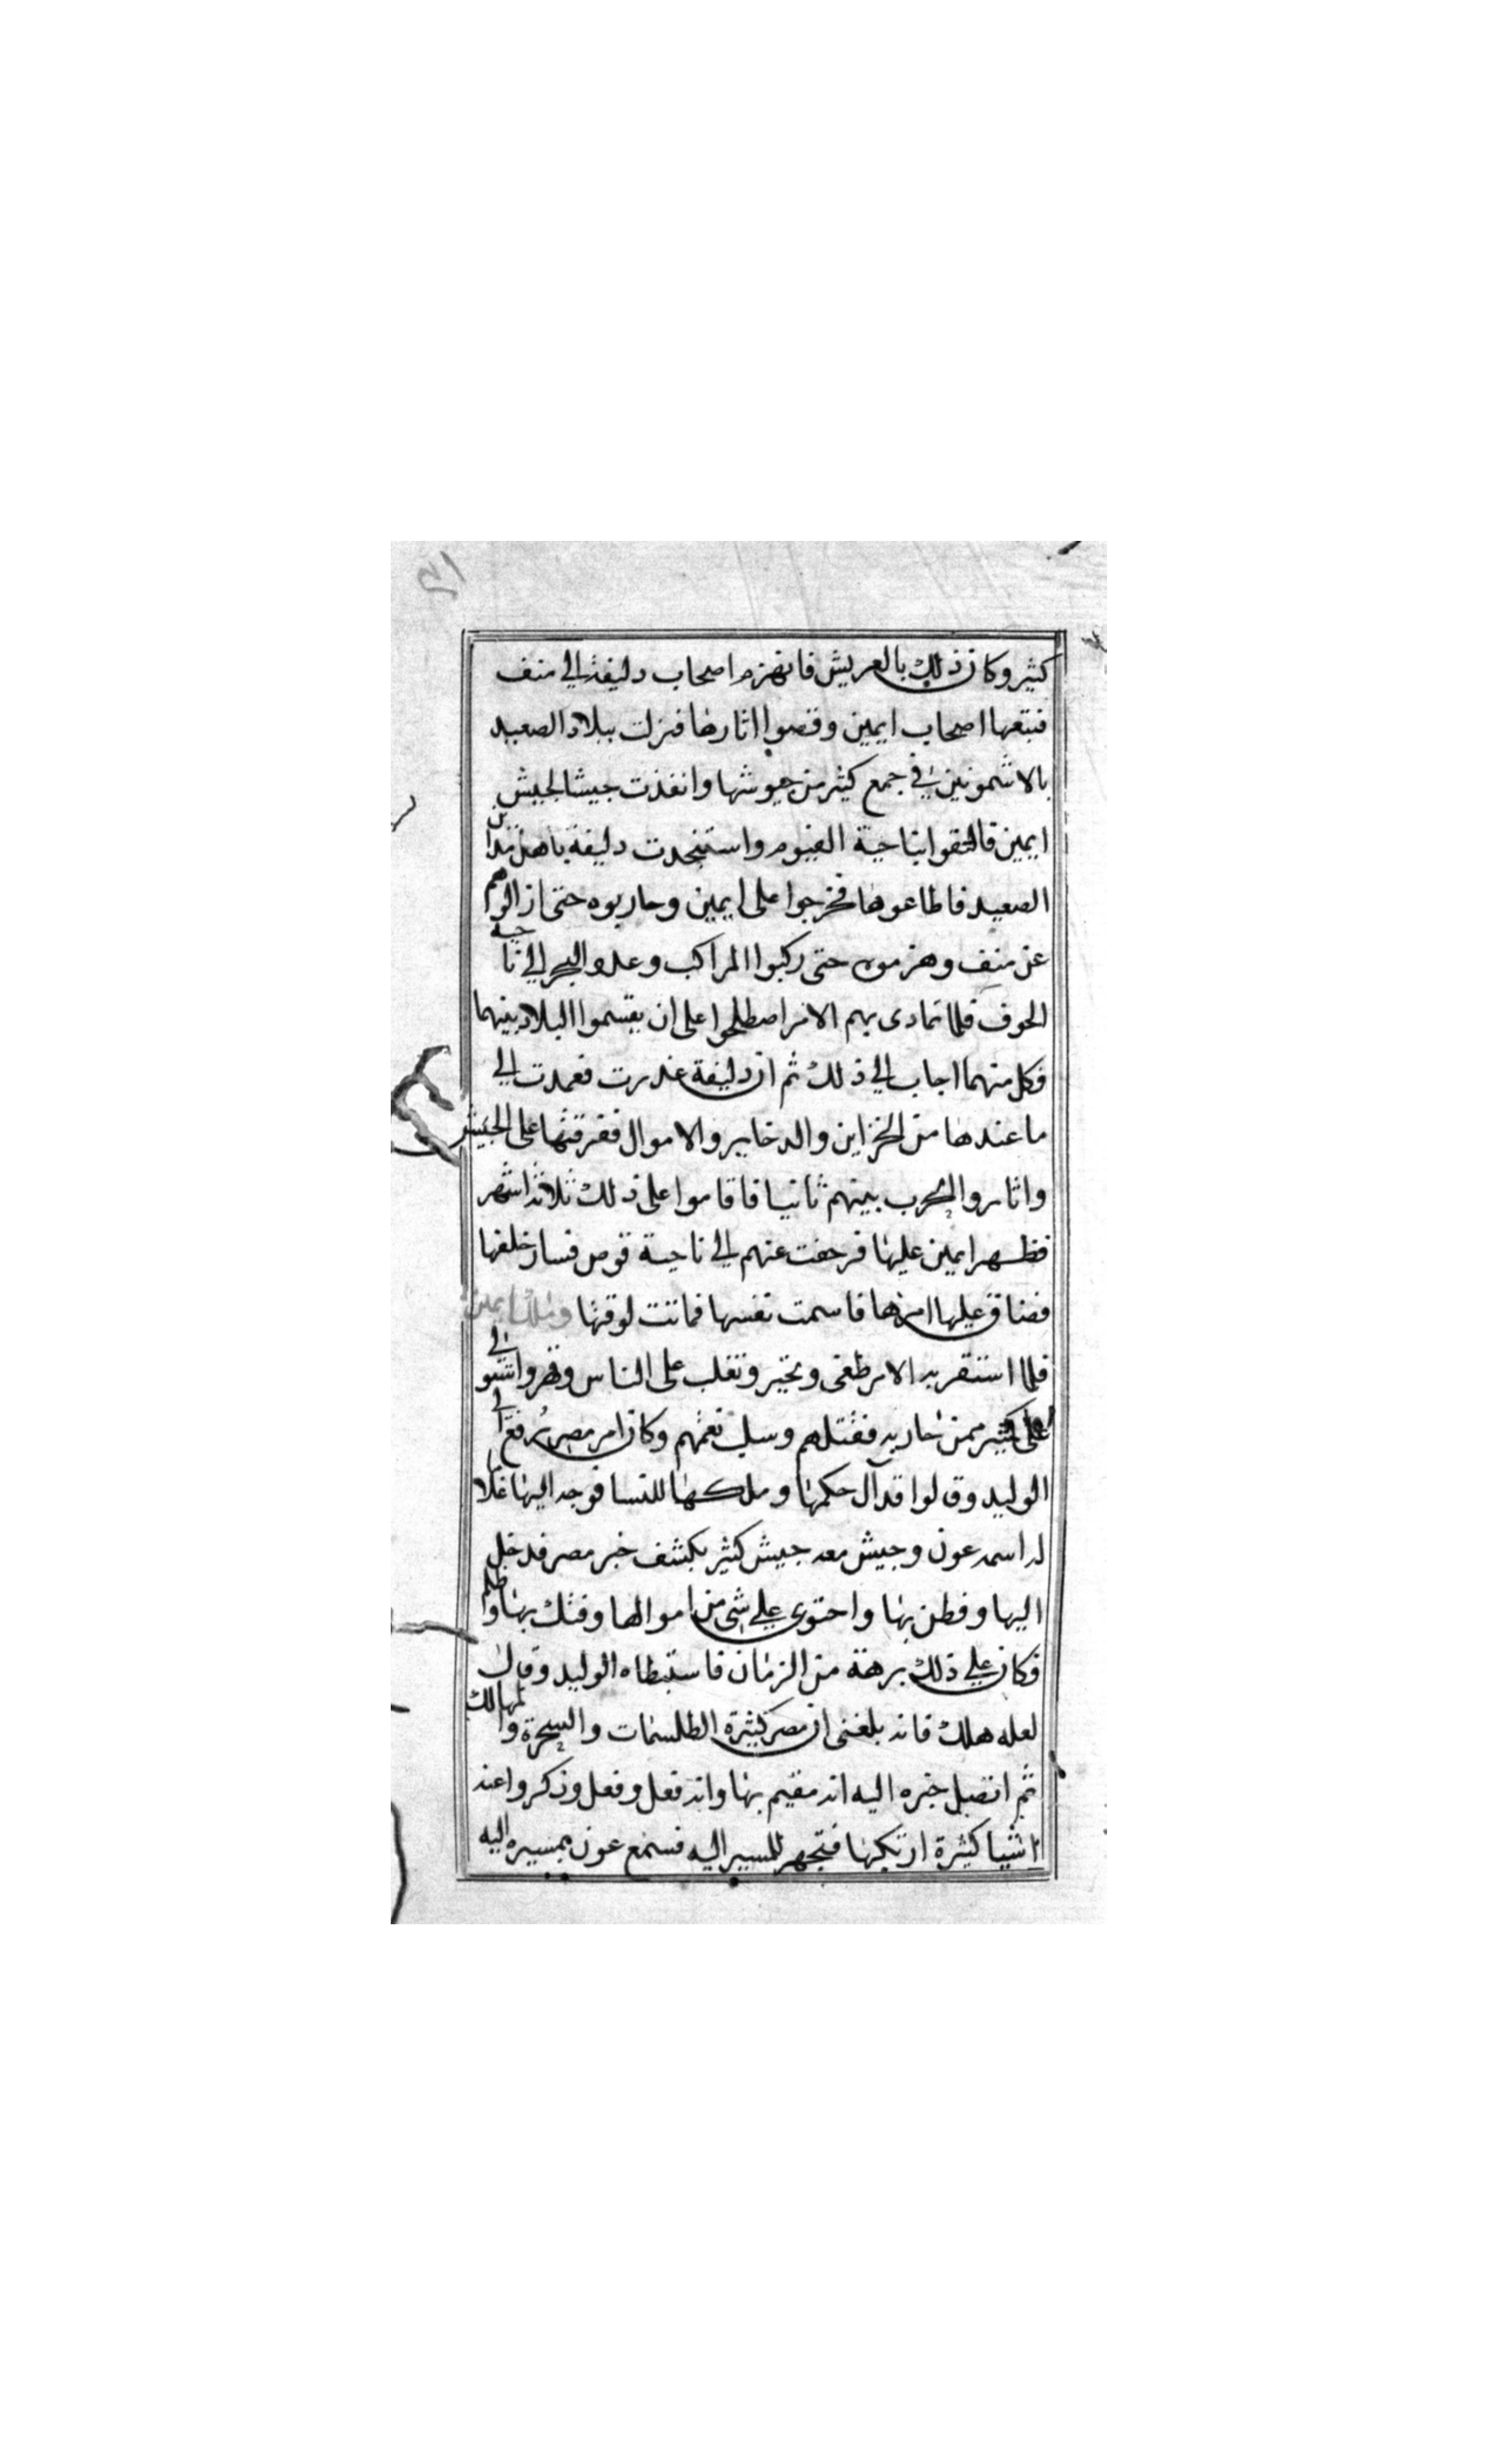 كثير وكان ذلك بالعريش فانهزم اصحاب دليفة الي منف
فتبعها اصحاب ايمين وقصوا اثارها فنزلت ببلاد الصعيد
بالاشمونين في جمع كثير من جيوشها وانفذت جيشا لجيش
ايمين فالتقوا بناحية الفيوم واستنجدت دليفة باهل مداين
الصعيد فاطاعوها فخرجوا على ايمين وحاربوه حتى ازالوهم
عن منف وهزموه حتى ركبوا المراكب وعدوا البحر الي ناحية
الحوف فلما تمادى بهم الامر اصطلحوا على ان يقتسموا البلاد بينهما
فكل منهما اجاب الي ذلك ثم ان دليفة غدرت فعمدت الي
ما عندها من الخزاين والدخاير والاموال ففرقتها على الجيش
واثاروا الحرب بينهم ثانيا فاقاموا على ذلك ثلاثة اشهر
فظهر ايمين عليها فزحفت عنهم الي ناحية قوص فسار خلفها
فضاق عليها امرها فاسمت نفسها فماتت لوقتها وملك ايمين
فلما استقر به الامر طغى وتجبر وتغلب على الناس وقهر واستولي
على كثير ممن حاربه فقتلهم وسلب نعمهم وكان امر مصر يرفع الي
الوليد وقالوا قد آل حكمها وملكها للنسا فوجه اليها غلاما
له اسمه عون وجيش معه جيش كثير يكشف خبر مصر فدخل
اليها وفطن بها واحتوى علي شي من اموالها وفتك بها وظلم
فكان علي ذلك برهة من الزمان فاستبطاه الوليد وقال
لعله هلك فانه بلغني ان مصر كثيرة الطلسمات والسحرة والمهالك
ثم اتصل خبره اليه انه مقيم بها وانه فعل وفعل وذكروا عنه
اشيا كثيرة ارتكبها فتجهز للمسير اليه فسمع عون بمسيره اليه